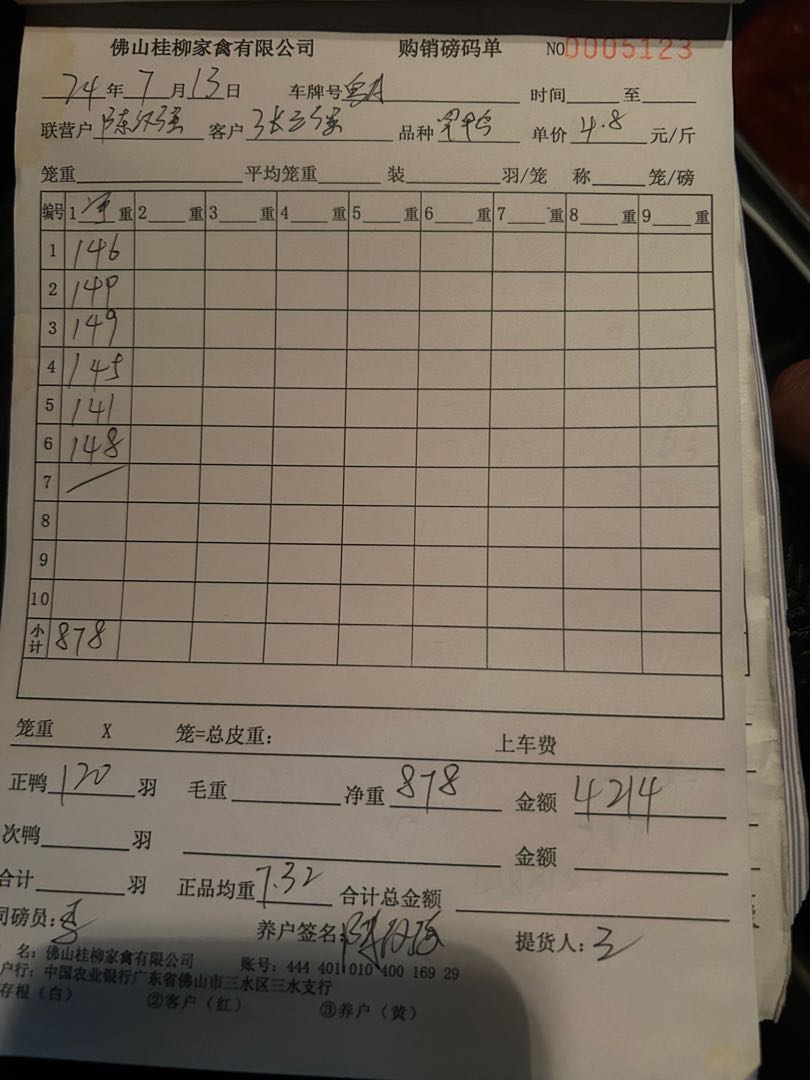 佛山桂柳家禽有限公司 购销磅码单 NO 0005123
24年7月13日 车牌号 时间 至
联营户 陈汉强 客户 张立强 品种 单价 4.8 元/斤
笼重 平均笼重 装 羽/笼 称 笼/磅
编号 1 净重 2 重 3 重 4 重 5 重 6 重 7 重 8 重 9 重
1 146
2 149
3 149
4 145
5 141
6 148
7
8
9
10
小计 878
笼重 X 笼=总皮重: 上车费
正鸭 120 羽 毛重 净重 878 金额 4214
次鸭 羽 金额
合计 羽 正品均重 7.32 合计总金额
司磅员: 李 养户签名: 陈汉强 提货人: 王
名: 佛山桂柳家禽有限公司 账号: 444 401 010 400 169 29
户行: 中国农业银行广东省佛山市三水区三水支行
存根（白） ②客户（红） ③养户（黄）